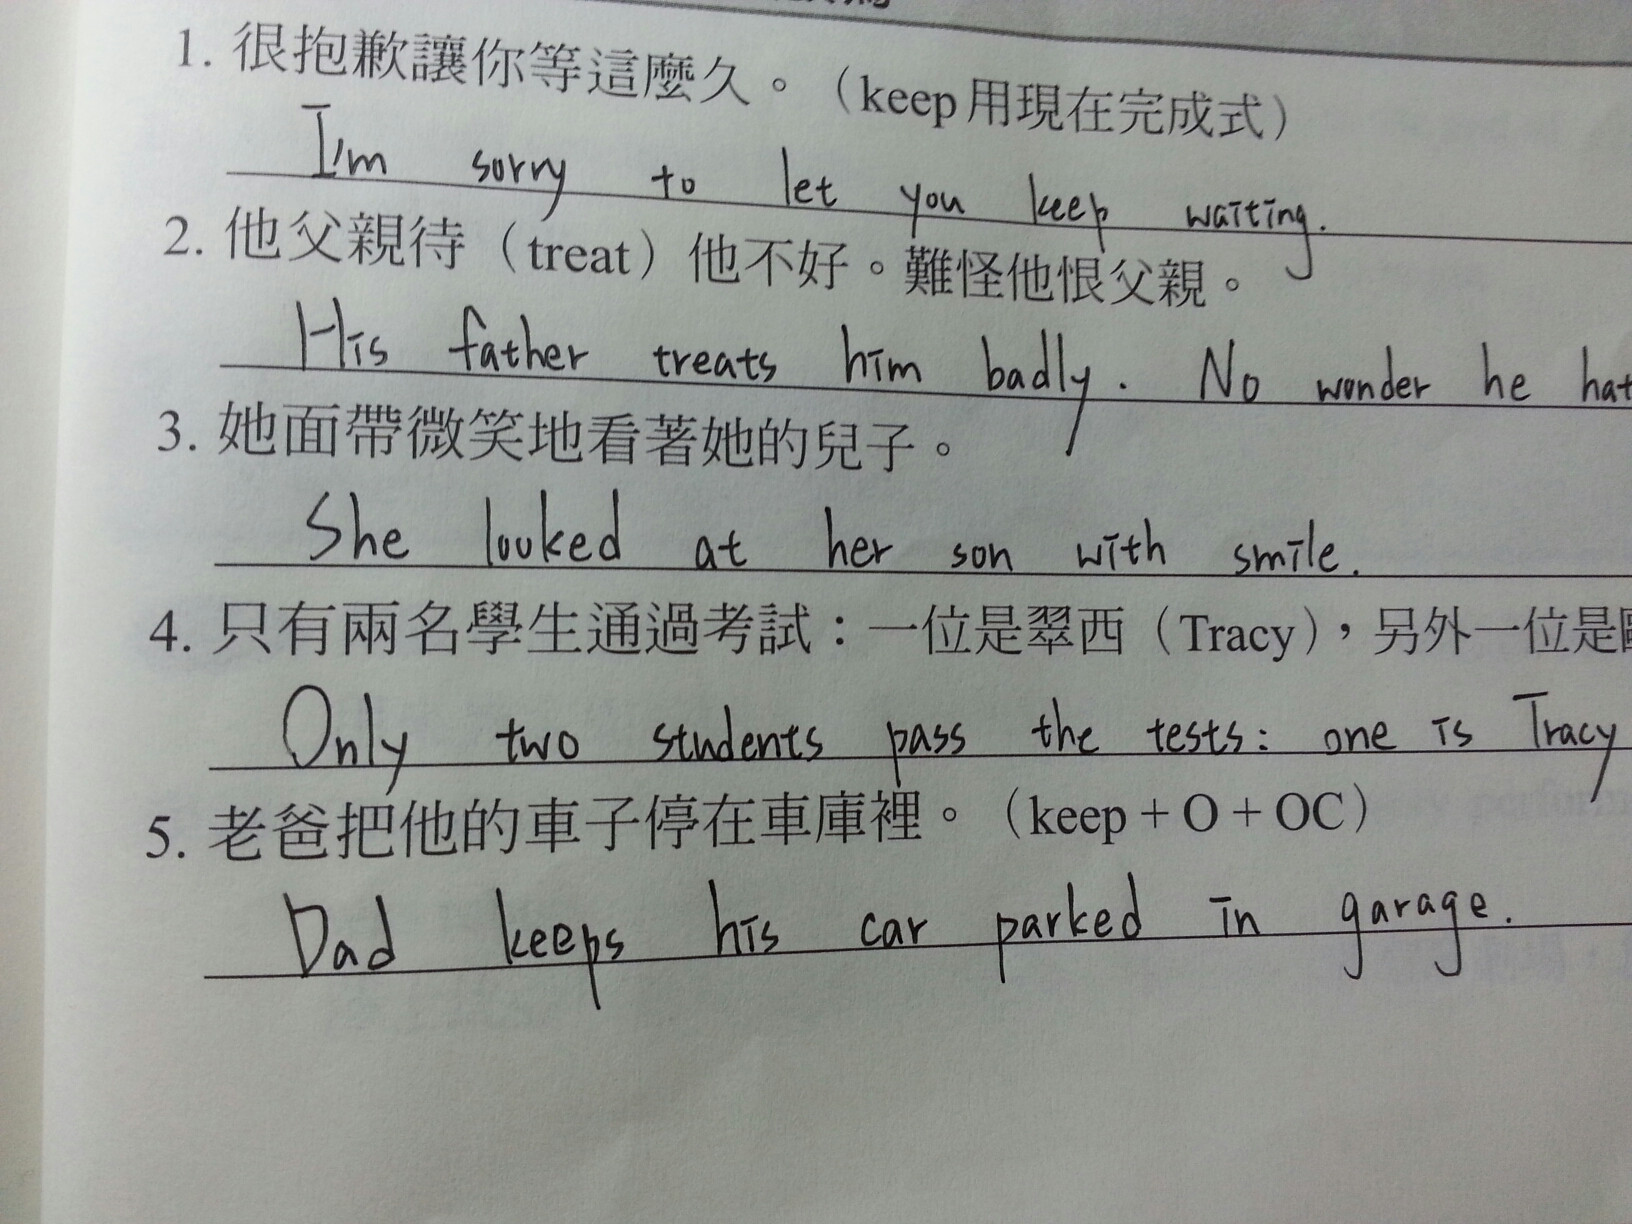 1. 很抱歉讓你等這麼久。（keep用現在完成式）
I'm sorry to let you keep waiting.
2. 他父親待（treat）他不好。難怪他恨父親。
His father treats him badly. No wonder he hat
3. 她面帶微笑地看著她的兒子。
She looked at her son with smile.
4. 只有兩名學生通過考試：一位是翠西（Tracy），另外一位是
Only two students pass the tests: one is Tracy
5. 老爸把他的車子停在車庫裡。（keep + O + OC）
Dad keeps his car parked in garage.